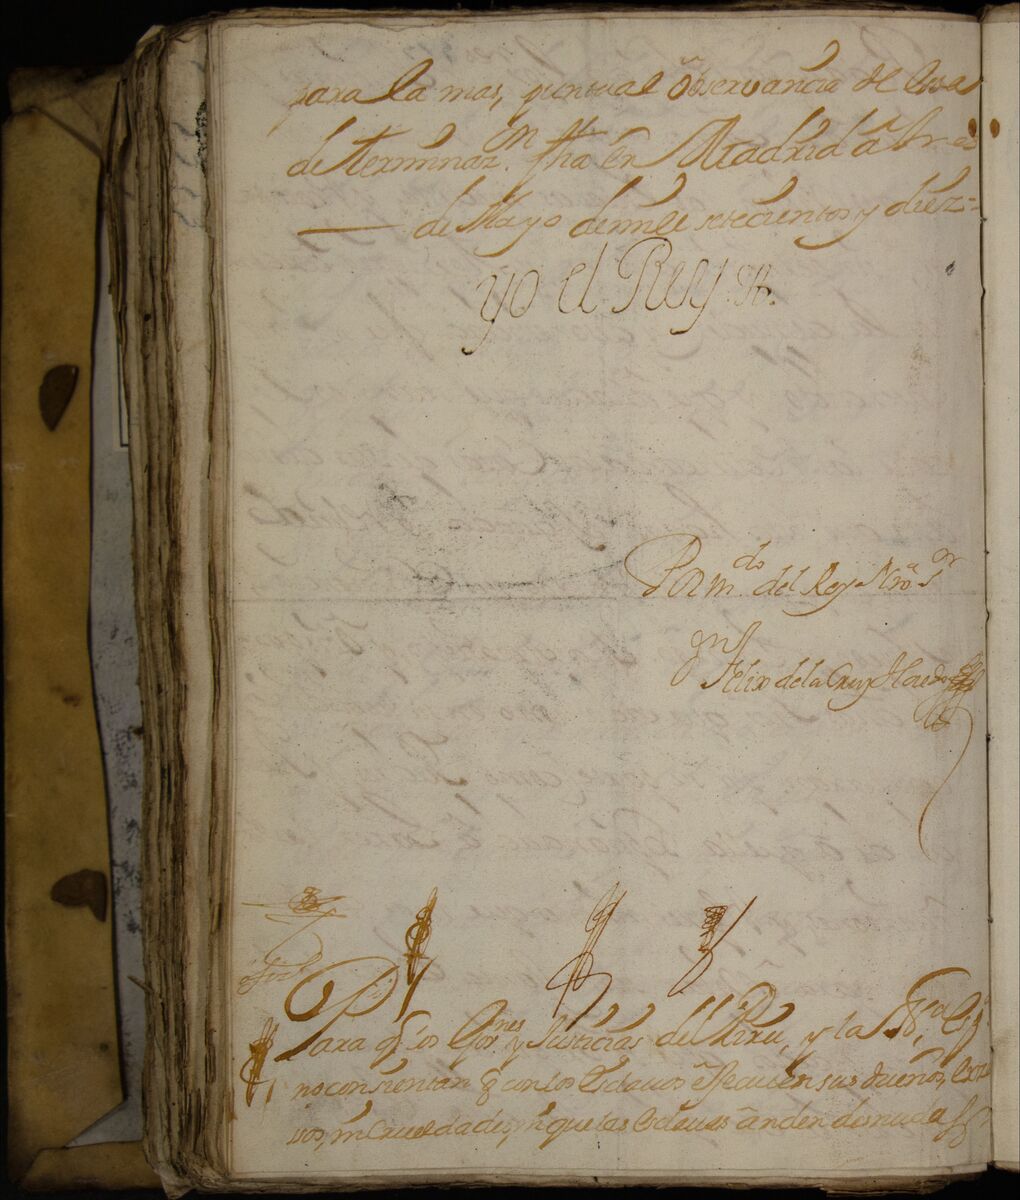 para la mas, puntual observancia de esta
determinaz.on fha en Madrid a tres
de Mayo de mill setecientos y diez=
yo el Rey
Por m.do del Rey Nro S.or
Felix de la Cruz Haedo
Para q. los Gov.nes y Justicias del Piru, y la
no consientan q con los Esclavos executen sus dueños, exce
sos, ni crueldades, ni que las esclavas anden desnudas